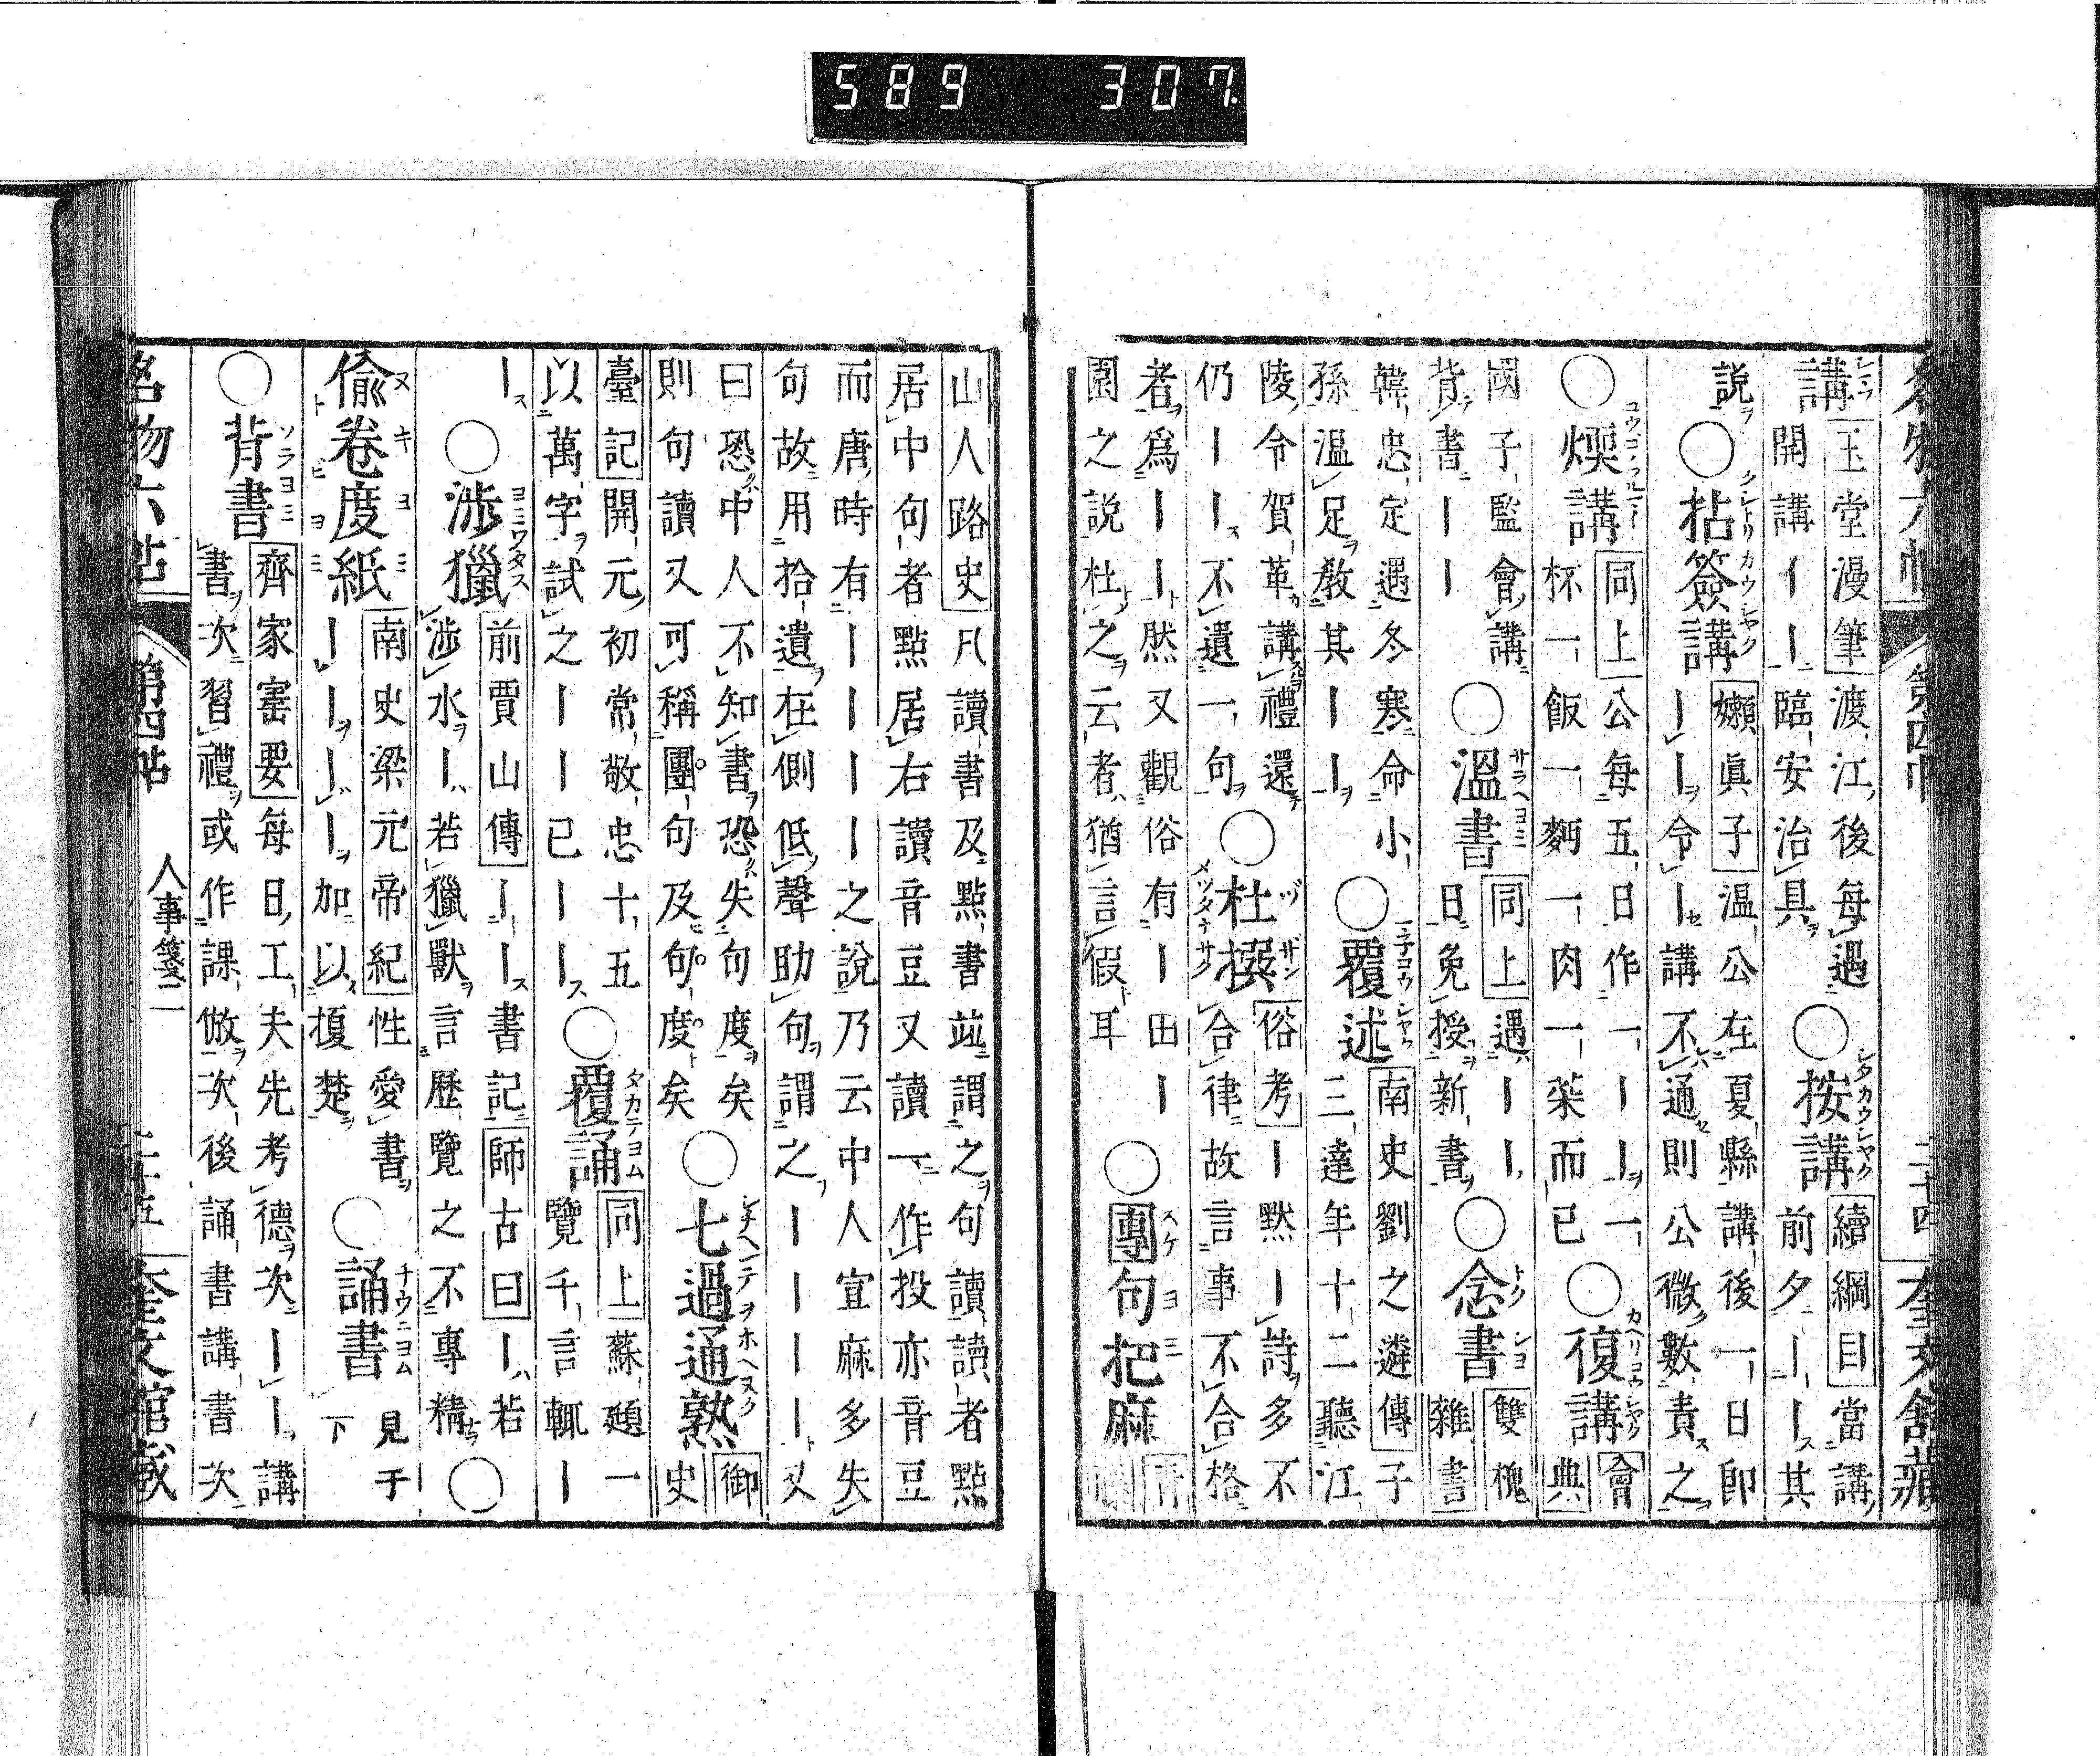 589 307
講 玉堂漫筆 渡江後每遇
開講〡〡臨安治具
○按講 續綱目 當講
前夕〡〡其
說○拈簽講 嬾眞子 温公在夏縣講後一日卽
〡〡令〡講不通則公微數責之
○煗講 同上 公每五日作一〡〡一
杯一飯一麪一肉一菜而已
○復講 會典
國子監會講
背書〡〡
○溫書 同上 遇〡〡
日免授新書
○念書 雙槐
雜書
韓忠定遇冬寒命小
孫溫足教其〡〡
○覆述 南史劉之遴傳 子
三達年十二聽江
陵令賀革講禮還
仍〡〡不遺一句
○杜撰 俗考 〡默〡詩多不
合律故言事不合格
者爲〡〡然又觀俗有〡田〡
園之說杜之云者猶言假耳
○團句把麻
山人路史 凡讀書及點書竝謂之句讀讀者點
居中句者點居右讀音豆又讀一作投亦音豆
而唐時有〡〡〡〡之說乃云中人宜麻多失
句故用拾遺在側低聲助句謂之〡〡〡〡又
曰恐中人不知書恐失句度矣
則句讀又可稱團句及句度矣
○七過通熟 御
史
臺記 開元初常敬忠十五
以萬字試之〡〡已〡〡
○覆誦 同上 蘇頲一
覽千言輒〡
〡○涉獵 前賈山傳 〡〡書記 師古曰 〡若
涉水〡若獵獸言歷覽之不專精
○
偸卷度紙 南史梁元帝紀 性愛書
〡〡〡〡加以榎楚
○誦書 見于
下
○背書 齊家寶要 每日工夫先考德次〡〡講
書次習禮或作課倣次後誦書講書次
名物六帖 第四帖 人事箋二 二十五 奎文館藏